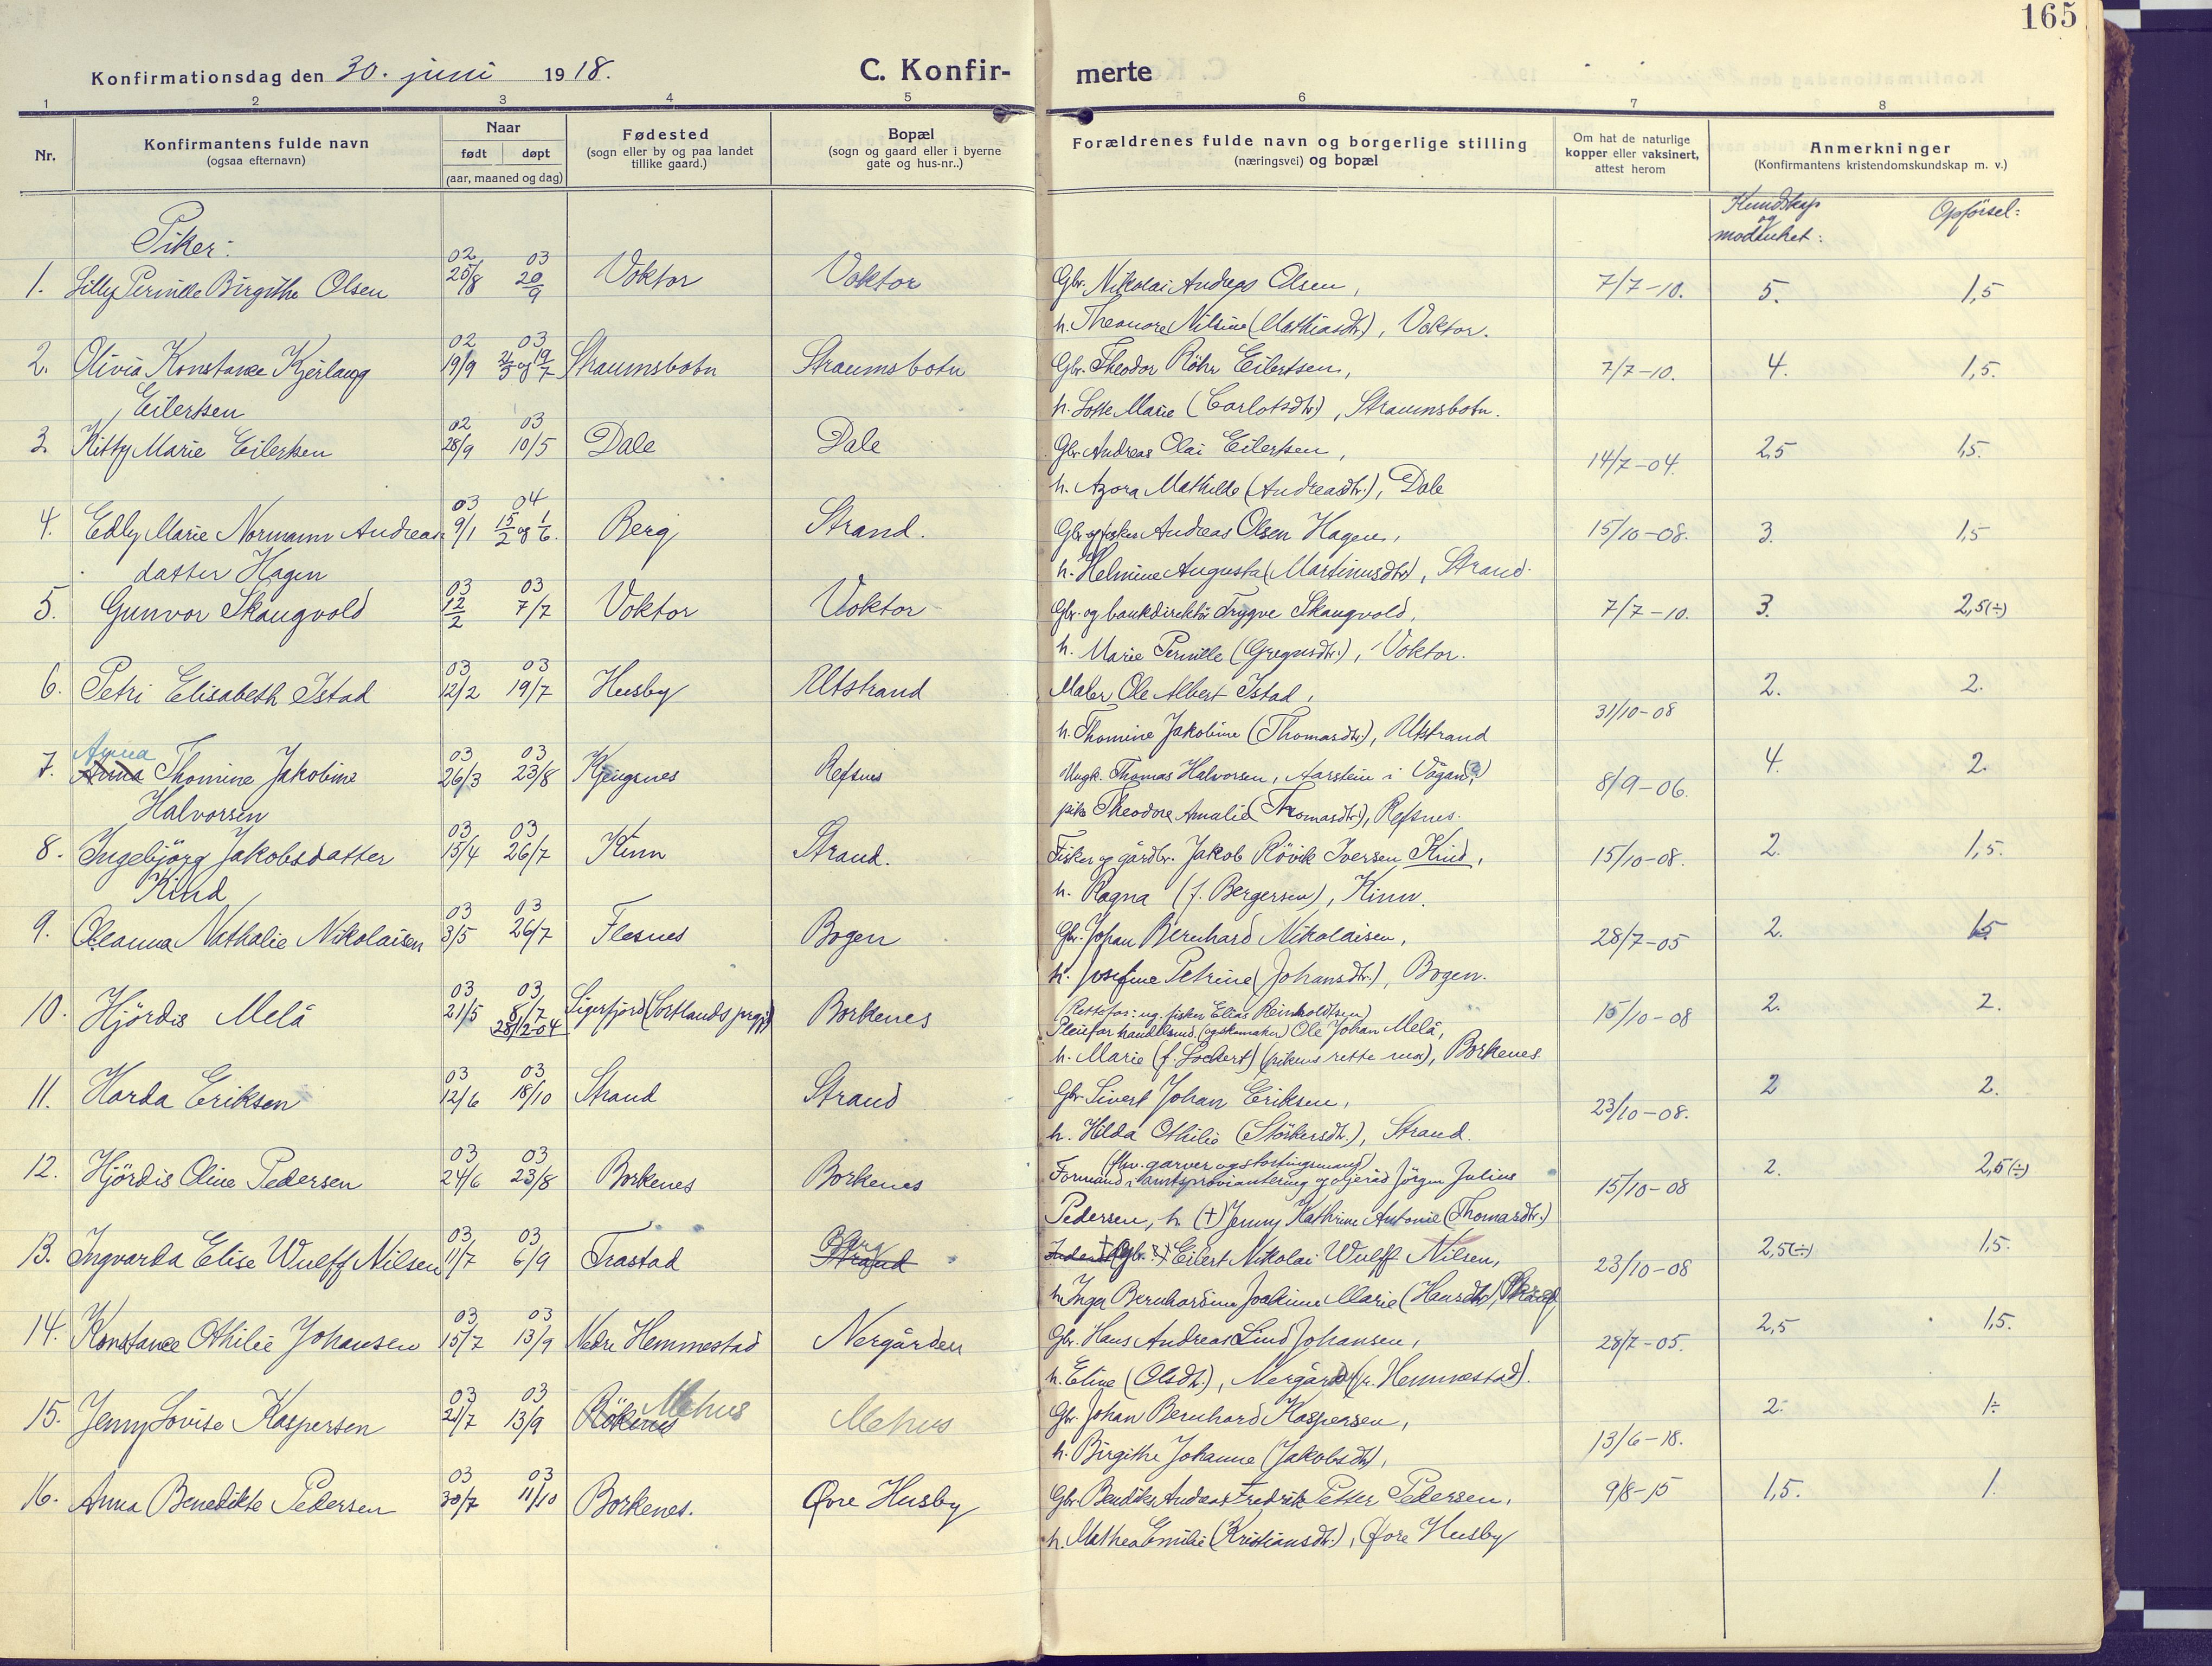 165
Konfirmationsdag den 30. juni 1918.
C. Konfir- merte
1 2 3 4 5 6 7 8
Nr.
Konfirmantens fulde navn
(ogsaa efternavn)
Naar
født døpt
(aar, maaned og dag)
Fødested
(sogn eller by og paa landet
tillike gaard.)
Bopæl
(sogn og gaard eller i byerne
gate og hus-nr..)
Forældrenes fulde navn og borgerlige stilling
(næringsvei) og bopæl
Om hat de naturlige
kopper eller vaksinert,
attest herom
Anmerkninger
(Konfirmantens kristendomskundskap m. v.)
Kundskap
og
modenhet: Opførsel:
Piker:
02 03
1. Lilly Pernille Birgithe Olsen 25/8 20/9 Voktor Voktor Gbr. Nikolai Andreas Olsen, 7/7-10. 5. 1,5
h. Theonore Nilsine (Mathiasdtr.), Voktor.
02 03
2. Olivia Konstance Kjerlaug 19/9 2/3 og 19/7 Straumsbotn Straumsbotn Gbr. Theodor Röhr Eilertsen, 7/7-10. 4. 1,5.
Eilertsen h. Lotte Marie (Carlotsdtr.), Straumsbotn.
02 03
3. Kitty Marie Eilertsen 28/9 10/5 Dale Dale Gbr. Andreas Olai Eilertsen, 14/7-04. 2,5 1,5.
h. Azora Mathilde (Andreasdtr.), Dale
03 04
4. Edly Marie Normann Andreas- 9/1 15/2 og 1/6. Berg Strand. Gbr. og fisker Andreas Olsen Hagen, 15/10-08. 3. 1,5
datter Hagen h. Helmine Augusta (Martinusdtr.), Strand.
03 03
5. Gunvor Skaugvold 12/2 7/7 Voktor Voktor Gbr. og bankdirektør Trygve Skaugvold, 7/7-10. 3. 2,5(÷)
h. Marie Pernille (Gregusdtr.), Voktor.
03 03
6. Petri Elisabeth Istad 12/2 19/7 Husby Utstrand Maler Ole Albert Istad, 31/10-08 2. 2.
h. Thomine Jakobine (Thomasdtr.), Utstrand
Anna 03 03
7. Anna Thomine Jakobine 26/3 23/8 Kjengsnes Refsnes Ungk. Thomas Halvorsen, Aarstein i Vågan(?) 8/9-06. 4. 2.
Halvorsen pike Theodore Amalie (Thomasdtr.), Refsnes.
03 03
8. Ingebjörg Jakobsdatter 15/4 26/7 Kinn Strand. Fisker og gårdbr. Jakob Rövik Iversen Kind, 15/10-08. 2. 1,5.
Kind h. Ragna (f. Bergersen), Kinn.
03 03
9. Oleanna Nathalie Nikolaisen 3/5 26/7 Flesnes Bogen Gbr. Johan Bernhard Nikolaisen, 28/7-05 2. 1,5
h. Josefine Petrine (Johansdtr.), Bogen.
03 03
10. Hjördis Melå 21/5 8/7 28/2-04 Sigerfjord (Sortlands prgj.) Borkenes (Rettefar: ug. fisker Elias Reinholdtsen) 15/10-08 2. 2.
Pleiefar handelsmd. (og skomaker) Ole Johan Melå,
h. Marie (f. Lockert) (pikens rette mor), Borkenes
03 03
11. Harda Eriksen 12/6 18/10 Strand Strand Gbr. Sivert Johan Eriksen, 23/10-08. 2 2.
h. Hilda Othilie (Störkersdtr.), Strand.
03 03
12. Hjördis Oline Pedersen 24/6 23/8 Borkenes Borkenes (fhv. garver og stortingsmand) 15/10-08 2. 2,5(÷)
Formand i amtsproviantering og Jörgen Julius
Pedersen, h. (+) Jenny Kathrine Antonie (Thomasdtr.)
03 03 Berg
13. Ingvarda Elise Wulff Nilsen 11/7 6/9 Trastad Strand Gbr. Eilert Nikolai Wulff Nilsen, 23/10-08 2,5(÷) 1,5.
h. Inga Bernhardine Joakime Marie (Hansdtr.)
03 03
14. Konstance Othilie Johansen 15/7 13/9 Nedre Hemmestad Nergården Gbr. Hans Andreas Lind Johansen, 28/7-05. 2,5 1,5.
h. Eline (Olsdtr.), Nergård (n. Hemmestad).
03 03
15. Jenny Lovise Kaspersen 21/7 13/9 Rökenes Mehus Mehus Gbr. Johan Bernhard Kaspersen, 13/6-18. 2. 1÷
h. Birgithe Johanne (Jakobsdtr.),
03 03
16. Anna Benedikte Pedersen 30/7 11/10 Borkenes. Øvre Husby Gbr. Bendiks Andreas Fredrik Petter Pedersen, 9/8-15 1,5. 1.
h. Mathea Emilie (Kristiansdtr.), Øvre Husby